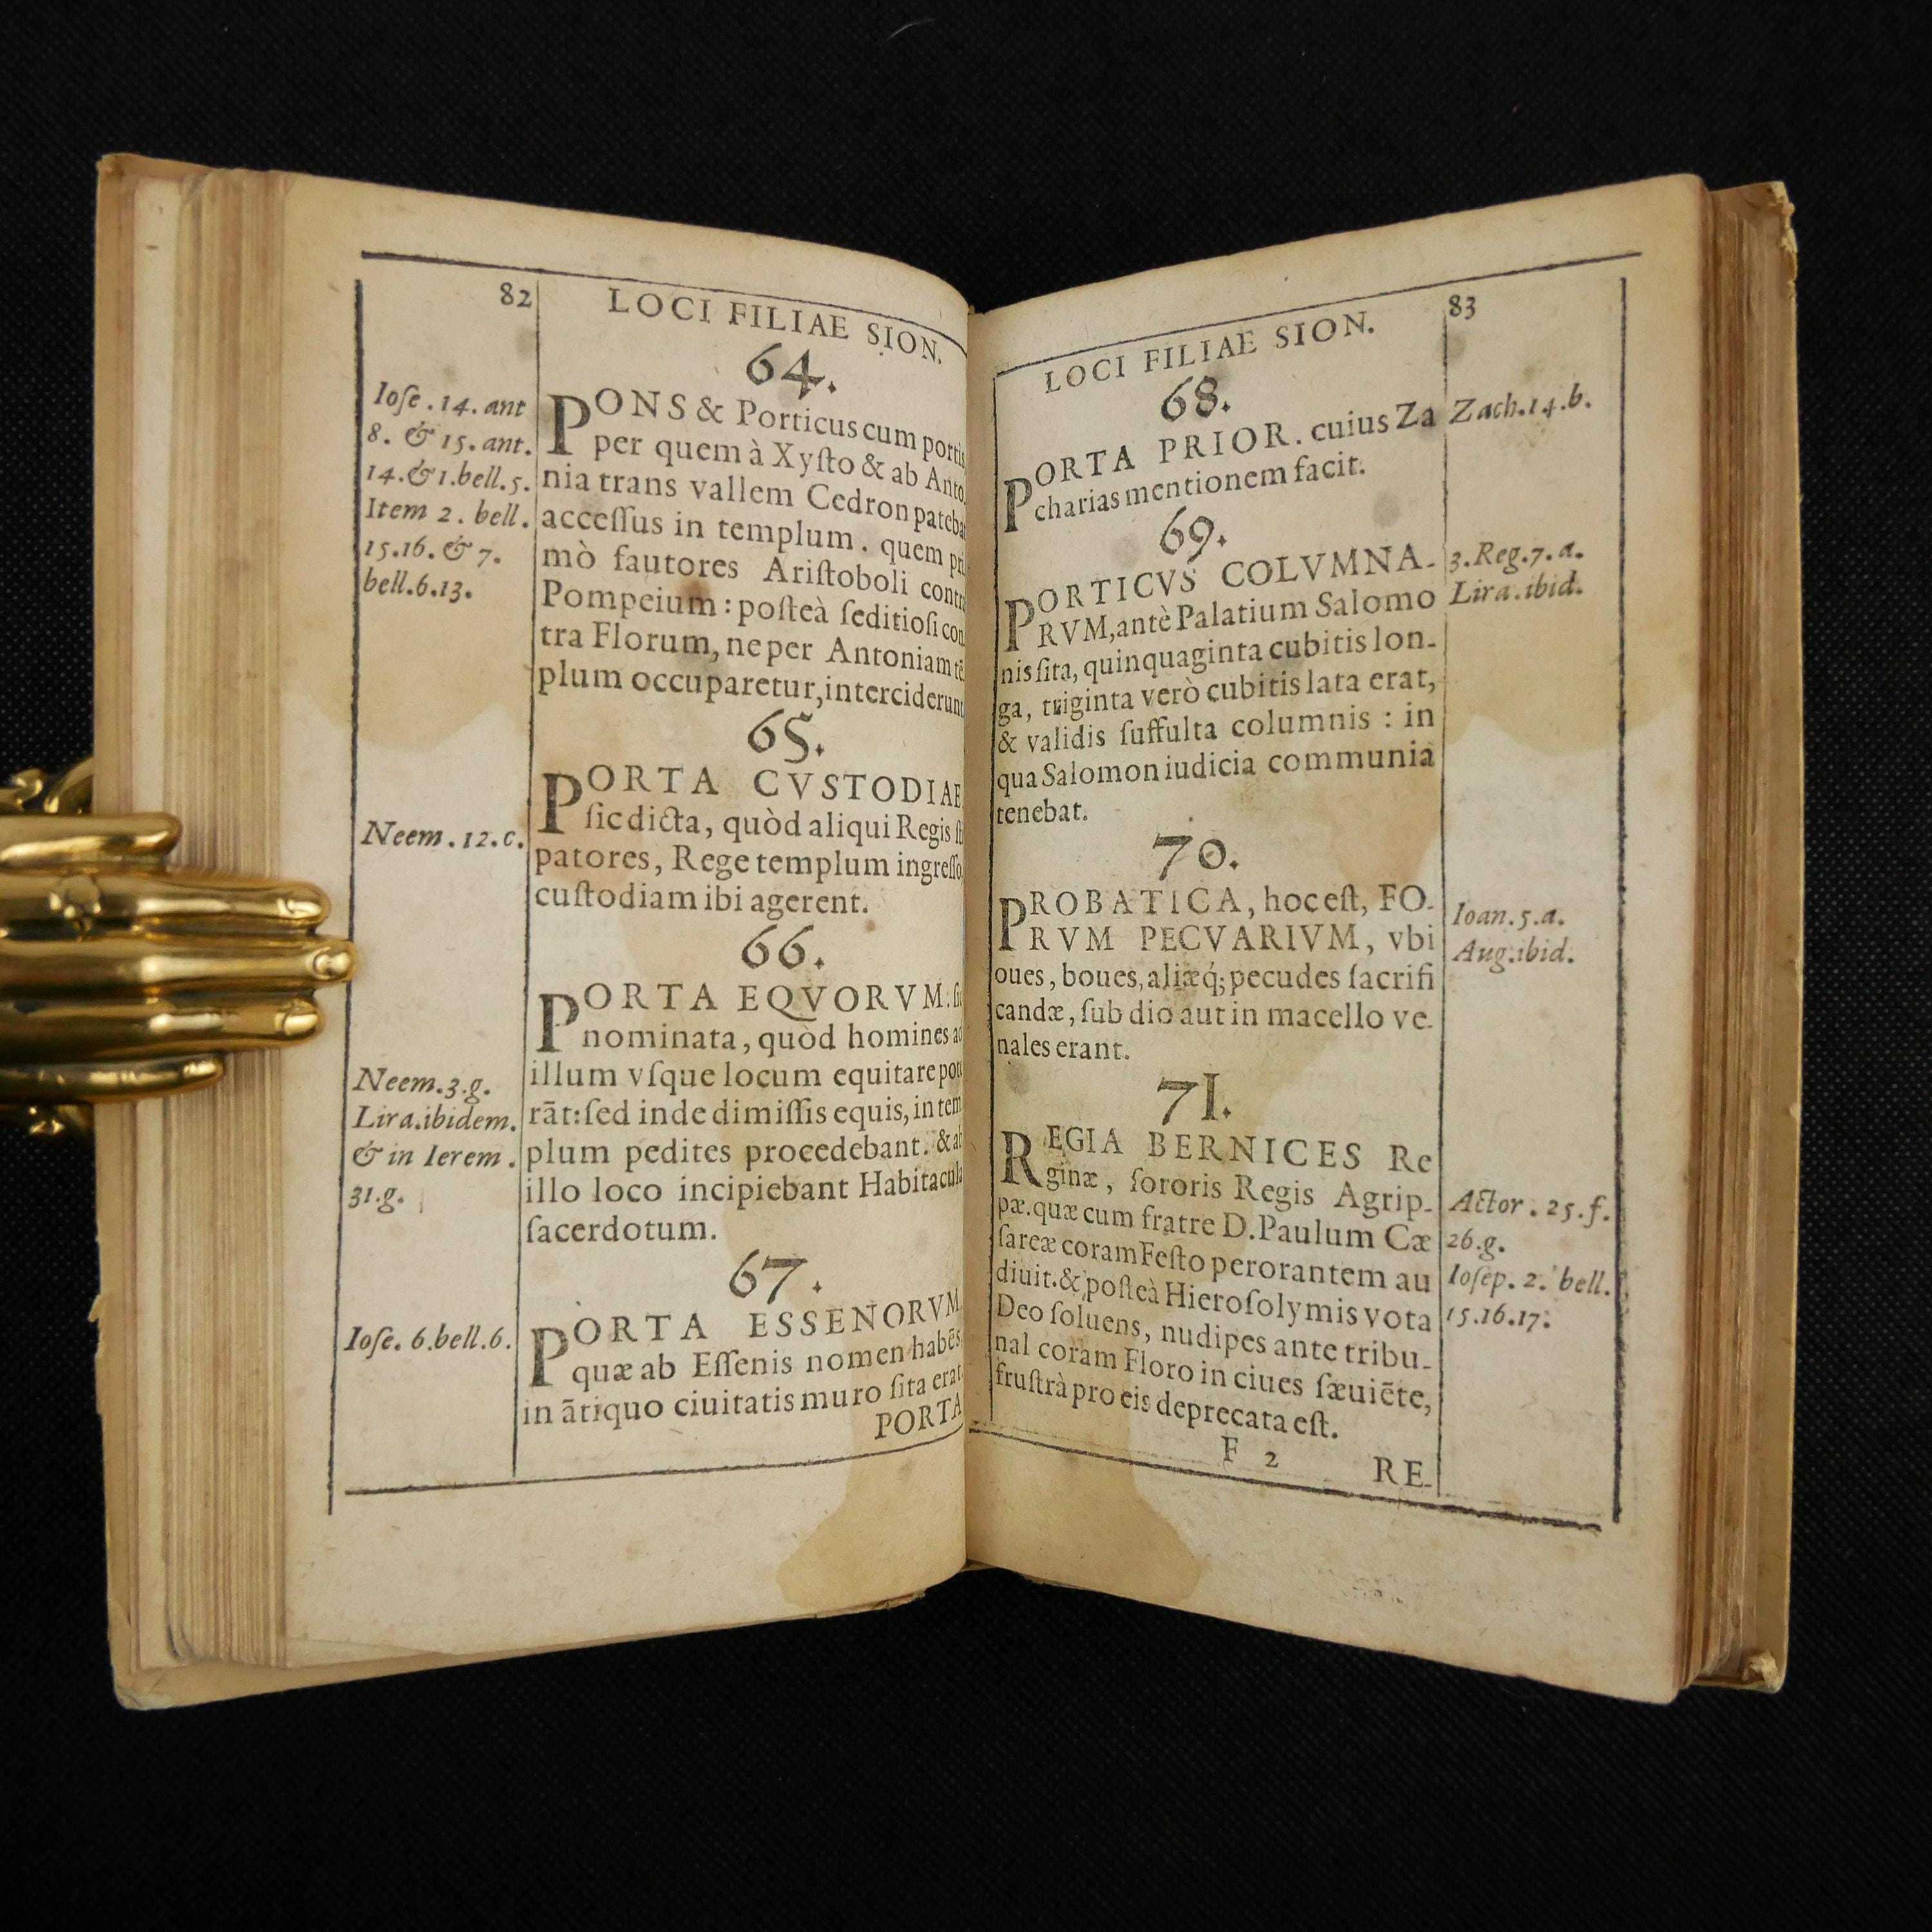 82
LOCI FILIAE SION.
64.
Ioſe. 14. ant
8. & 15. ant.
14. & 1. bell. 5.
Item 2. bell.
15. 16. & 7.
bell. 6. 13.
PONS & Porticus cum portis
per quem à Xyſto & ab Anto
nia trans vallem Cedron pateba
acceſſus in templum. quem pri
mò fautores Ariſtoboli contra
Pompeium: poſteà ſeditioſi con
tra Florum, ne per Antoniam tē
plum occuparetur, interciderunt
65.
Neem. 12. c.
PORTA CVSTODIAE
ſic dicta, quòd aliqui Regis ſti
patores, Rege templum ingreſſo,
cuſtodiam ibi agerent.
66.
Neem. 3. g.
Lira. ibidem.
& in Ierem.
31. g.
PORTA EQVORVM. ſic
nominata, quòd homines ad
illum vſque locum equitare pote
rāt: ſed inde dimiſſis equis, in tem
plum pedites procedebant. & ab
illo loco incipiebant Habitacula
ſacerdotum.
67.
Ioſe. 6. bell. 6.
PORTA ESSENORVM
quæ ab Eſſenis nomen habēs,
in ātiquo ciuitatis muro ſita erat.
PORTA
83
LOCI FILIAE SION.
68.
Zach. 14. b.
PORTA PRIOR. cuius Za
charias mentionem facit.
69.
3. Reg. 7. a.
Lira. ibid.
PORTICVS COLVMNA-
RVM, antè Palatium Salomo
nis ſita, quinquaginta cubitis lon-
ga, triginta verò cubitis lata erat,
& validis ſuffulta columnis: in
qua Salomon iudicia communia
tenebat.
70.
Ioan. 5. a.
Aug. ibid.
PROBATICA, hoc eſt, FO-
RVM PECVARIVM, vbi
oues, boues, aliæq́; pecudes ſacrifi
candæ, ſub dio aut in macello ve-
nales erant.
71.
Actor. 25. f.
26. g.
Ioſep. 2. bell.
15. 16. 17.
REGIA BERNICES Re
ginæ, ſororis Regis Agrip-
pæ. quæ cum fratre D. Paulum Cæ
ſareæ coram Feſto perorantem au
diuit. & poſteà Hieroſolymis vota
Deo ſoluens, nudipes ante tribu-
nal coram Floro in ciues ſæuiēte,
fruſtrà pro eis deprecata eſt.
F 2
RE-